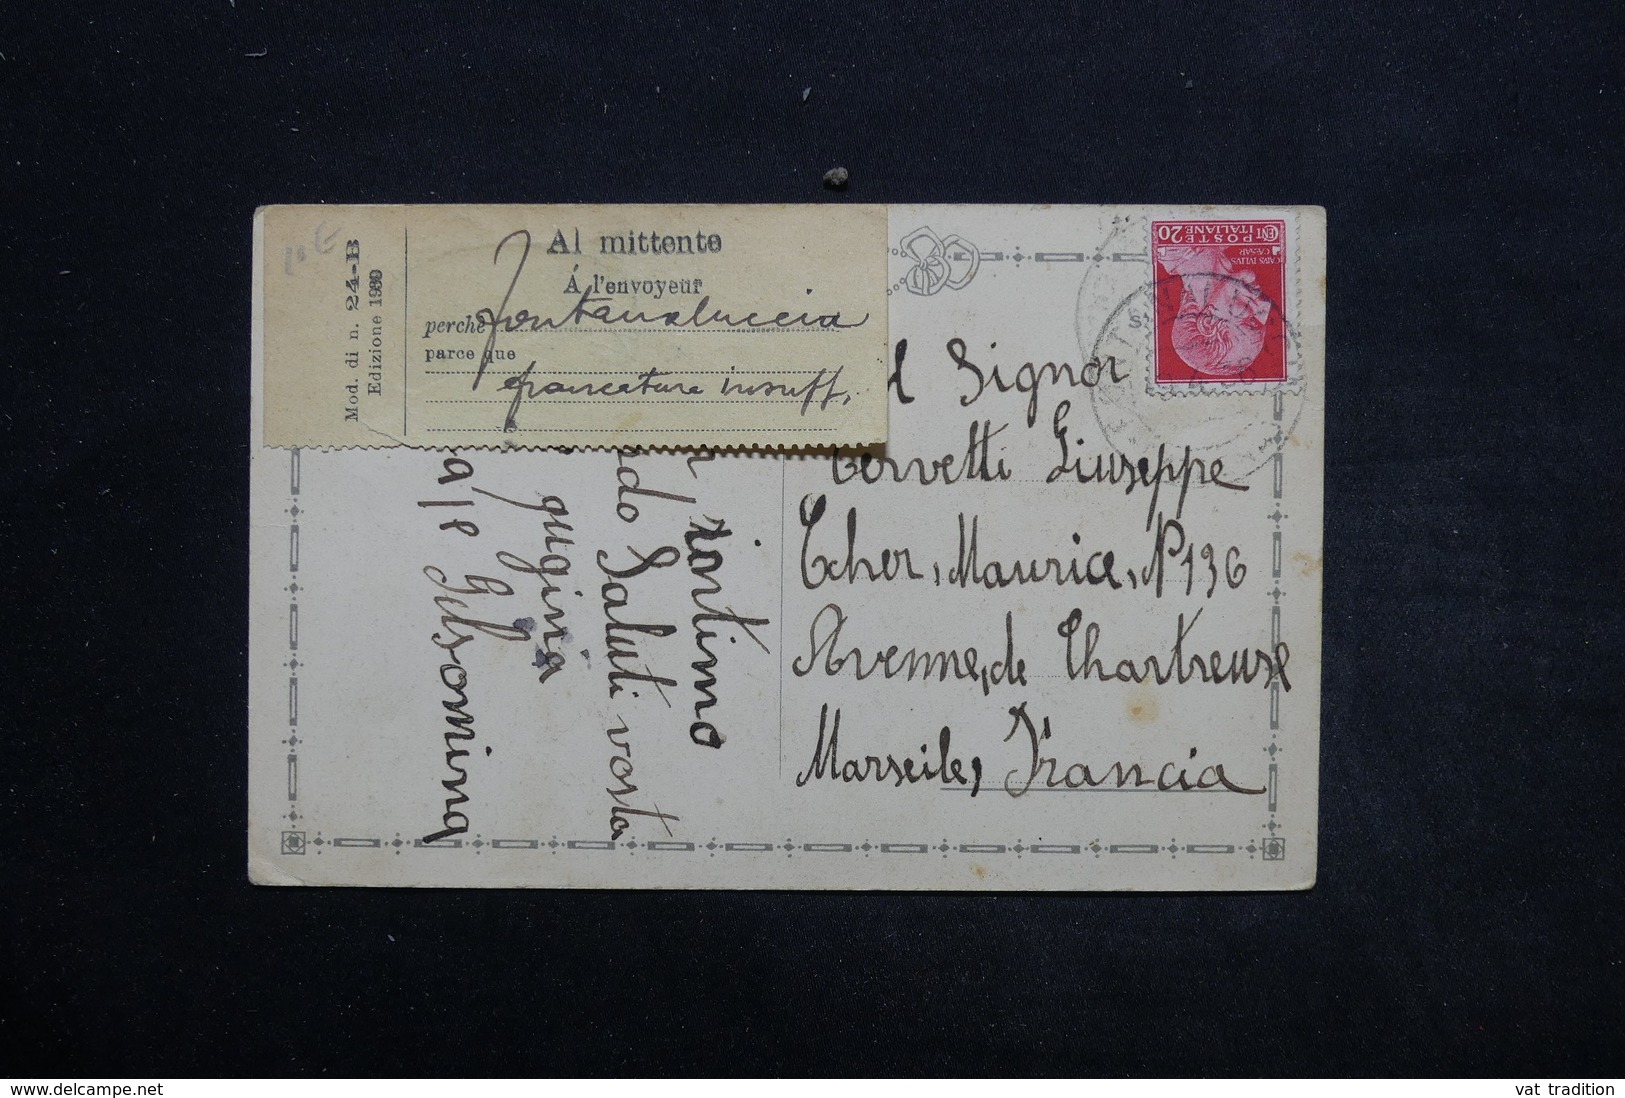 Mod. di n. 24-B
Edizione 1930
Al mittente
Á l'envoyeur
perché Fontanaluccia
parce que
francature insuff.
CENT 20 POSTE ITALIANE
CAIVS IVLIVS CAESAR
l Signor
Cervetti Giuseppe
Tcher, Maurice, N 136
Avenne, de Chartreuse
Marseile, Francia
rtimo
do Saluti vosta
qugina
Gelsomina
www.delcampe.net
vat tradition